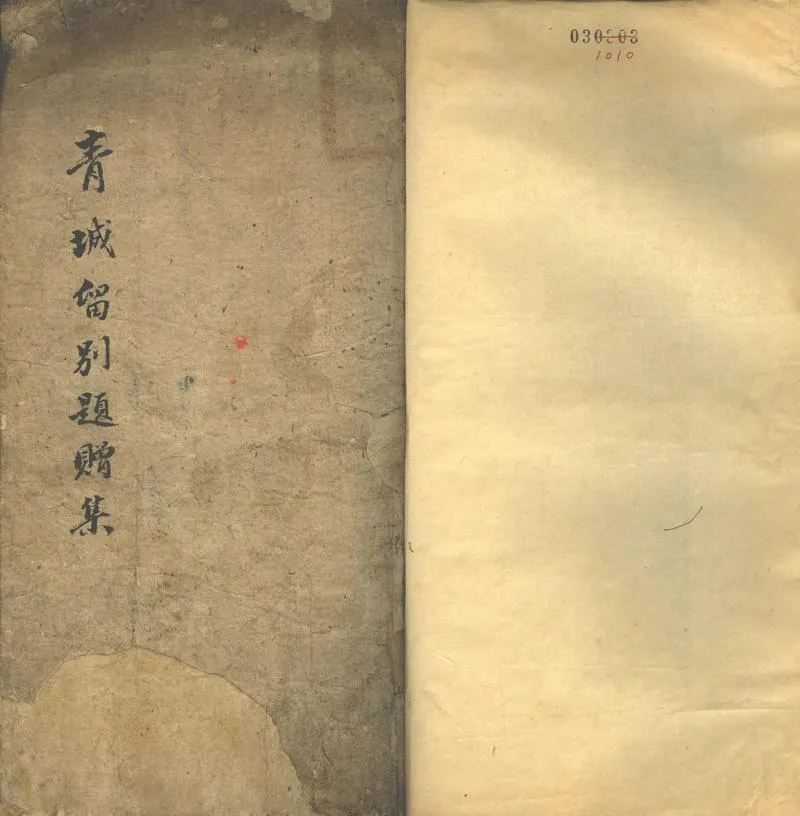 青城留別題贈集
030303
1010